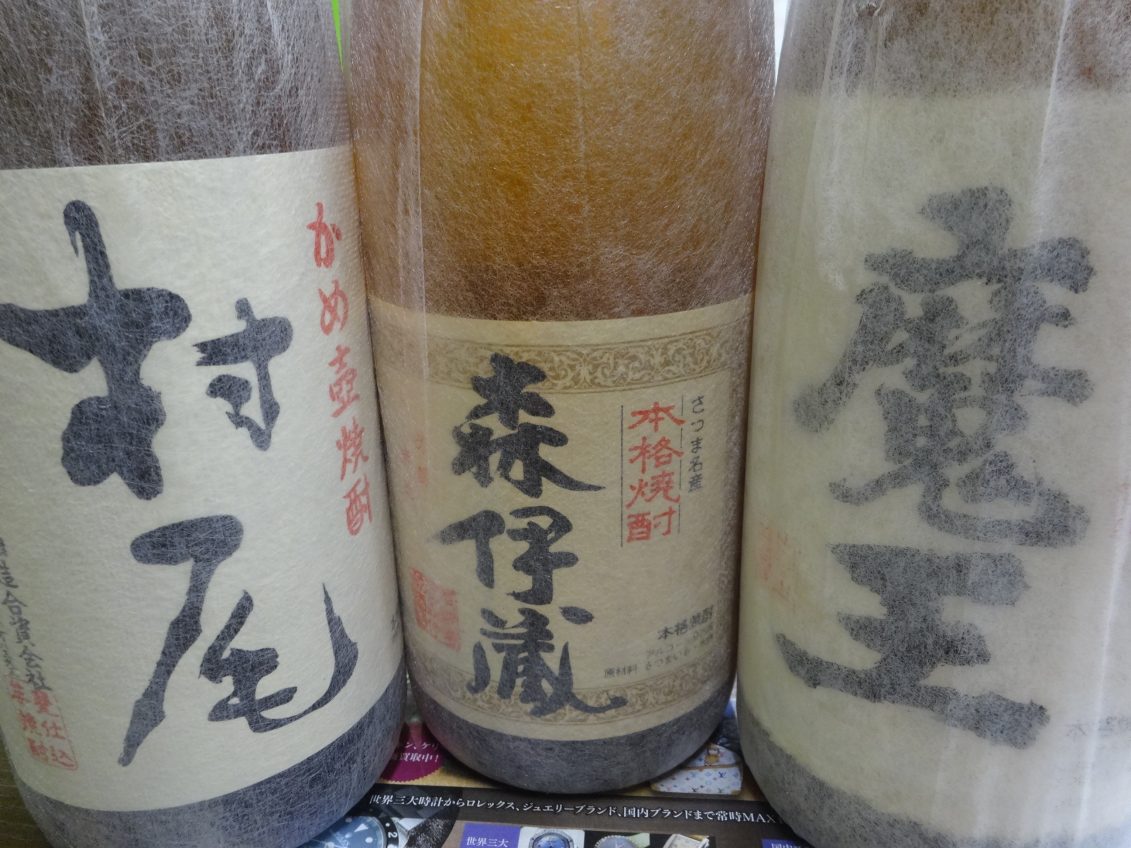 村尾
かめ壺焼酎
甕仕込
森伊蔵
さつま名産
本格焼酎
本格焼酎
原材料 さつまいも
魔王
買取中!
世界三大時計からロレックス、ジュエリーブランド、国内ブランドまで常時MAX
世界三大